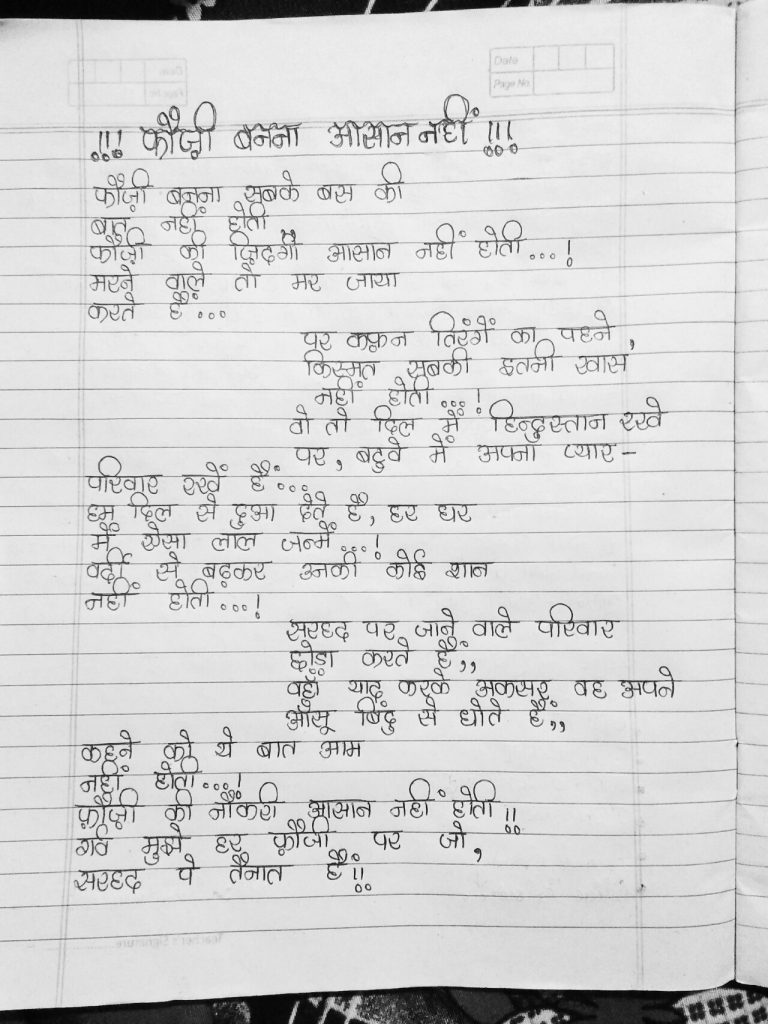 Date
Page No.
!!! फौज़ी बनना आसान नहीं !!!
फौज़ी बनना सबके बस की
बात नहीं होती
फौज़ी की ज़िंदगी आसान नहीं होती...!
मरने वाले तो मर जाया
करते हैं...
पर कफ़न तिरंगें का पहने,
किस्मत सबकी इतनी खास
नहीं होती...!
वो तो दिल में हिन्दुस्तान रखे
पर, बटुवे में अपना प्यार-
परिवार रखें हैं...
हम दिल से दुआ देते है, हर घर
में ऐसा लाल जन्में...!
वर्दी से बढ़कर उनकी कोई शान
नहीं होती...!
सरहद पर जाने वाले परिवार
छोड़ा करते हैं,,
वहाँ याद करके अकसर वह अपने
आँसू बिंदु से धोते हैं,,
कहने को ये बात आम
नहीं होती...!
फ़ौज़ी की नौकरी आसान नहीं होती!!
गर्व मुझे हर फ़ौजी पर जो,
सरहद पे तैनात हैं!!
Teacher's Signature